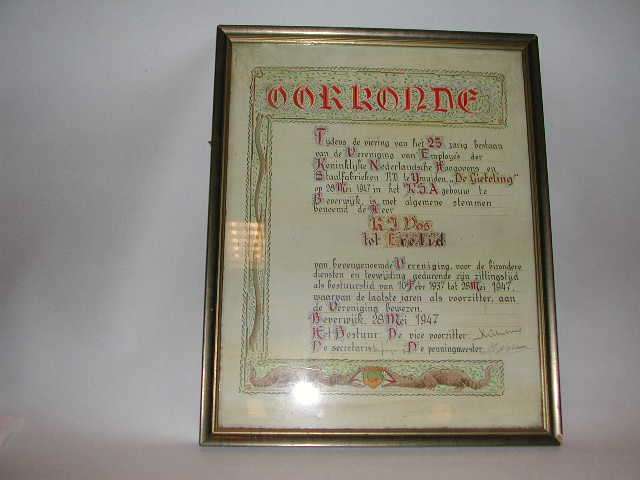 OORKONDE
Tijdens de viering van het 25 jarig bestaan
van de Vereniging van Employés der
Koninklijke Nederlandsche Hoogovens en
Staalfabrieken N.V. te Ymuiden, "De Gieteling"
op 28 Mei 1947 in het K.S.A gebouw te
Beverwijk, is met algemene stemmen
benoemd de Heer
K J Vos
tot Erelid
van bovengenoemde Vereniging, voor de bijzondere
diensten en toewijding gedurende zijn zittingstijd
als bestuurslid van 16 Febr 1937 tot 28 Mei 1947,
waarvan de laatste jaren als voorzitter, aan
de Vereniging bewezen.
Beverwijk, 28 Mei 1947
Het Bestuur, De vice voorzitter,
De secretaris De penningmeester,